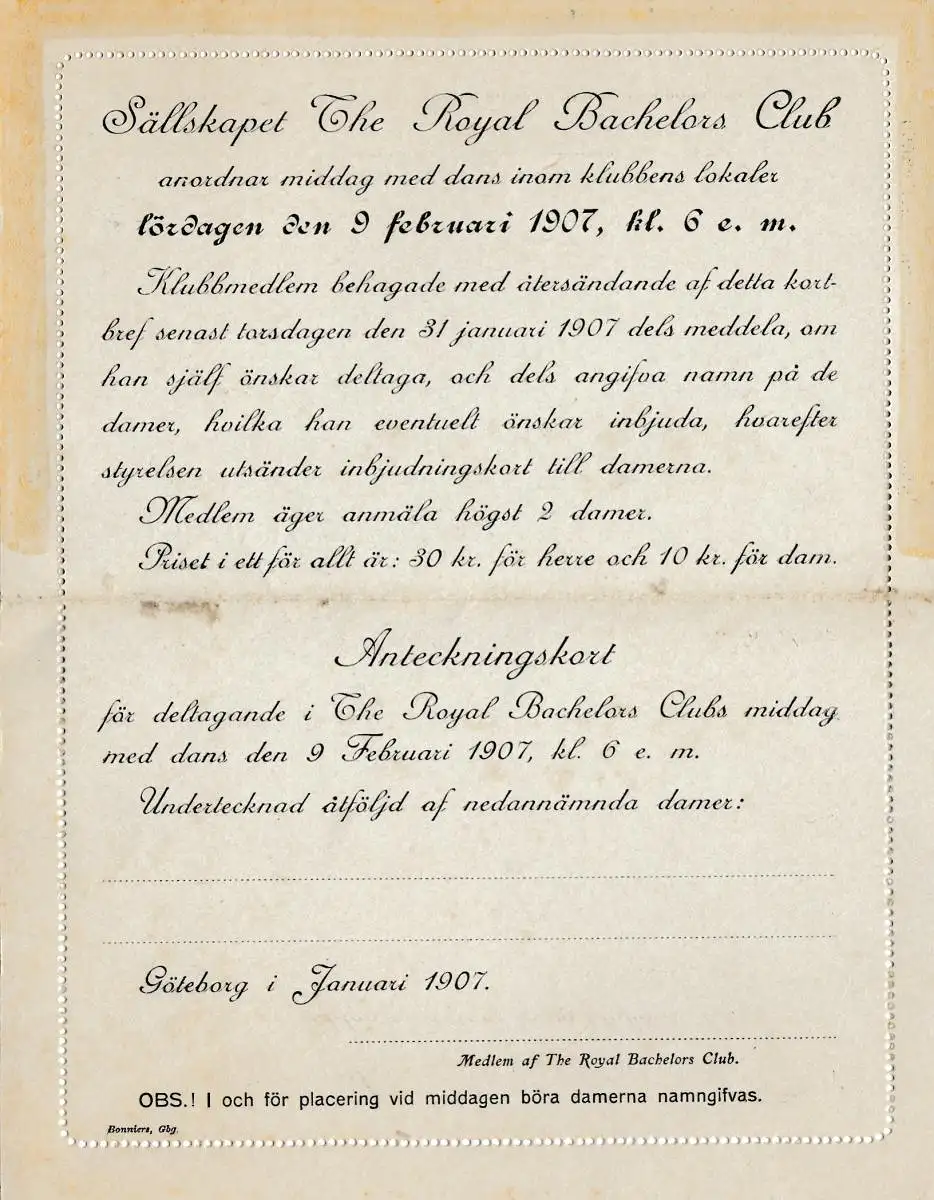 Sällskapet The Royal Bachelors Club
anordnar middag med dans inom klubbens lokaler
lördagen den 9 februari 1907, kl. 6 e. m.
Klubbmedlem behagade med återsändande af detta kort-
bref senast torsdagen den 31 januari 1907 dels meddela, om
han själf önskar deltaga, och dels angifva namn på de
damer, hvilka han eventuelt önskar inbjuda, hvarefter
styrelsen utsänder inbjudningskort till damerna.
Medlem äger anmäla högst 2 damer.
Priset i ett för allt är: 30 kr. för herre och 10 kr. för dam.
Anteckningskort
för deltagande i The Royal Bachelors Clubs middag
med dans den 9 Februari 1907, kl. 6 e. m.
Undertecknad åtföljd af nedannämnda damer:
Göteborg i Januari 1907.
Medlem af The Royal Bachelors Club.
OBS.! I och för placering vid middagen böra damerna namngifvas.
Bonniers, Gbg.